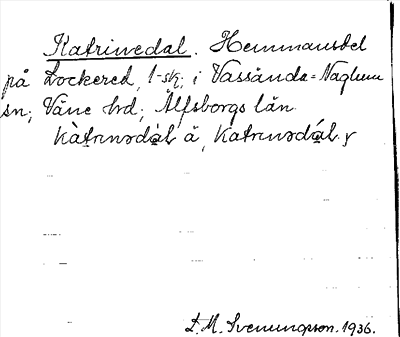 Katrinedal. Hemmansdel
på Lockered, 1-stg; i Vassända=Naglum
sn; Väne hd; Älfsborgs län.
KàtrınədáL ä, Katrınədáḷ y
L. M. Svenungsson. 1936.